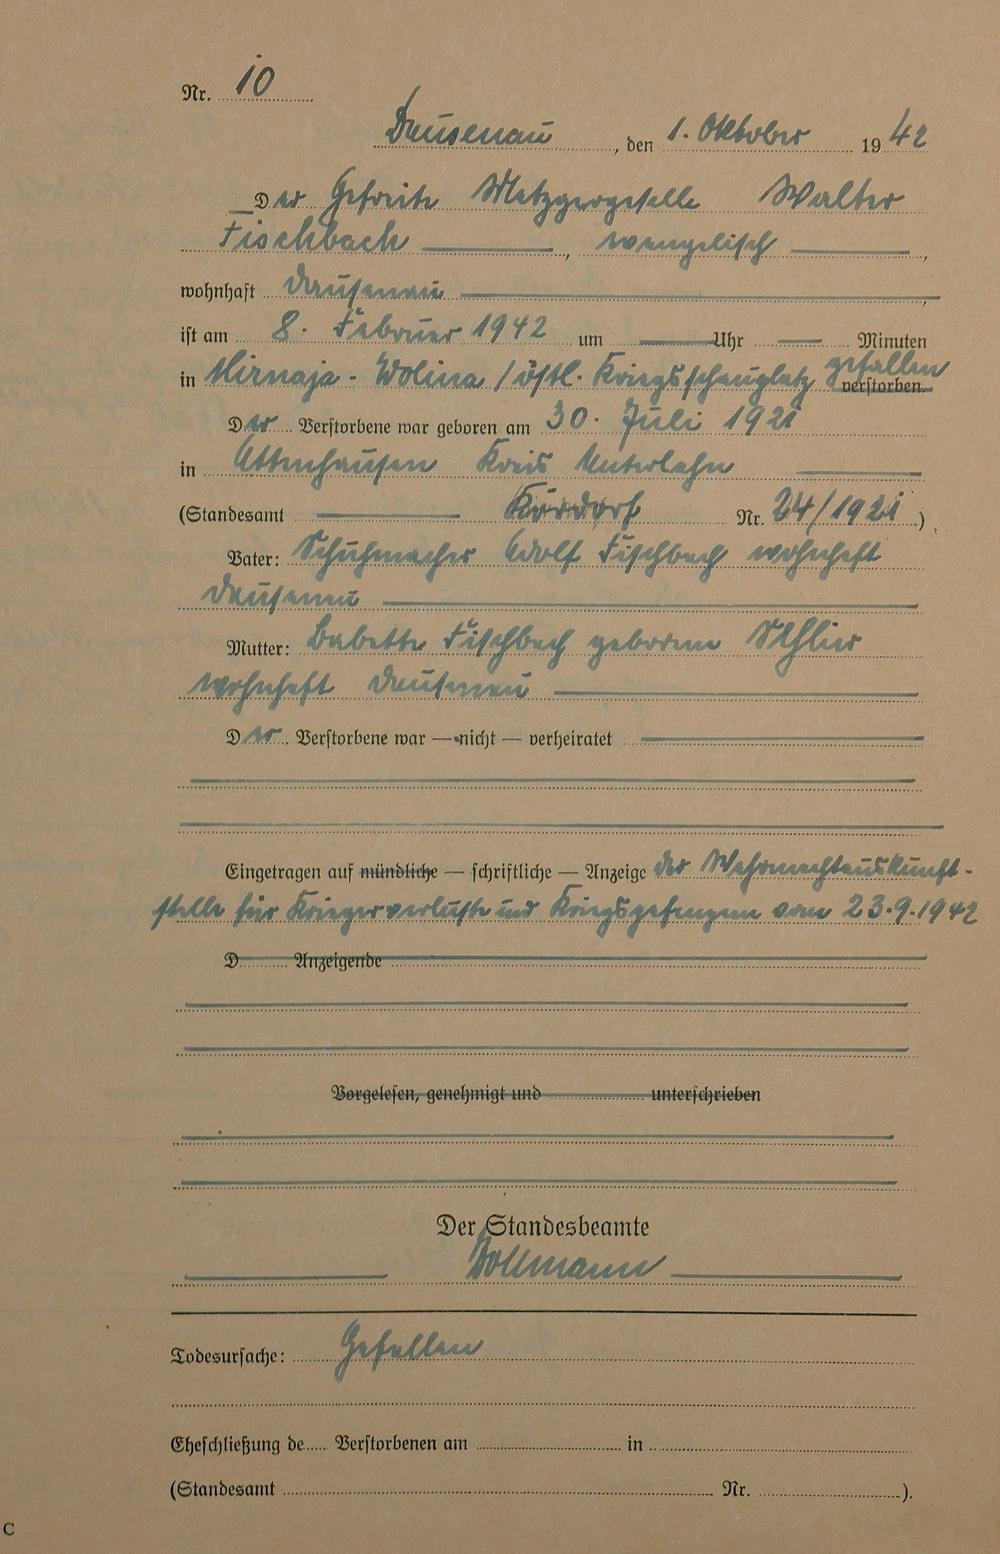 Nr. 10
Dausenau, den 1. Oktober 1942
Der Gefreite Metzgergeselle Walter
Fischbach, evangelisch,
wohnhaft Dausenau,
ist am 8. Februar 1942 um Uhr Minuten
in Mirnaja-Wolina / östl. Kriegsschauplatz gefallen verstorben.
Der Verstorbene war geboren am 30. Juli 1921
in Attenhausen Kreis Unterlahn
(Standesamt Kördorf Nr. 24/1921).
Vater: Schuhmacher Adolf Fischbach wohnhaft
Dausenau
Mutter: Babette Fischbach geborene
wohnhaft Dausenau
Der Verstorbene war — nicht — verheiratet
Eingetragen auf mündliche — schriftliche — Anzeige der Wehrmachtauskunft-
stelle für Kriegerverluste und Kriegsgefangene vom 23.9.1942
D Anzeigende
Vorgelesen, genehmigt und unterschrieben
Der Standesbeamte
Bollmann
Todesursache: Gefallen
Eheschließung de Verstorbenen am in
(Standesamt Nr. ).
C